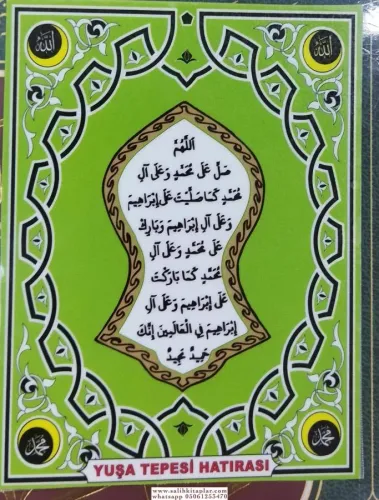 الله
الله
اَللّٰهُمَّ
صَلِّ عَلَى مُحَمَّدٍ وَعَلَى آلِ
مُحَمَّدٍ كَمَا صَلَّيْتَ عَلَى إِبْرَاهِيمَ
وَعَلَى آلِ إِبْرَاهِيمَ وَبَارِكْ
عَلَى مُحَمَّدٍ وَعَلَى آلِ
مُحَمَّدٍ كَمَا بَارَكْتَ
عَلَى إِبْرَاهِيمَ وَعَلَى آلِ
إِبْرَاهِيمَ فِي الْعَالَمِينَ إِنَّكَ
حَمِيدٌ مَجِيدٌ
محمد
محمد
YUŞA TEPESİ HATIRASI
www.salihkitaplar.com
whatsapp 05061255470